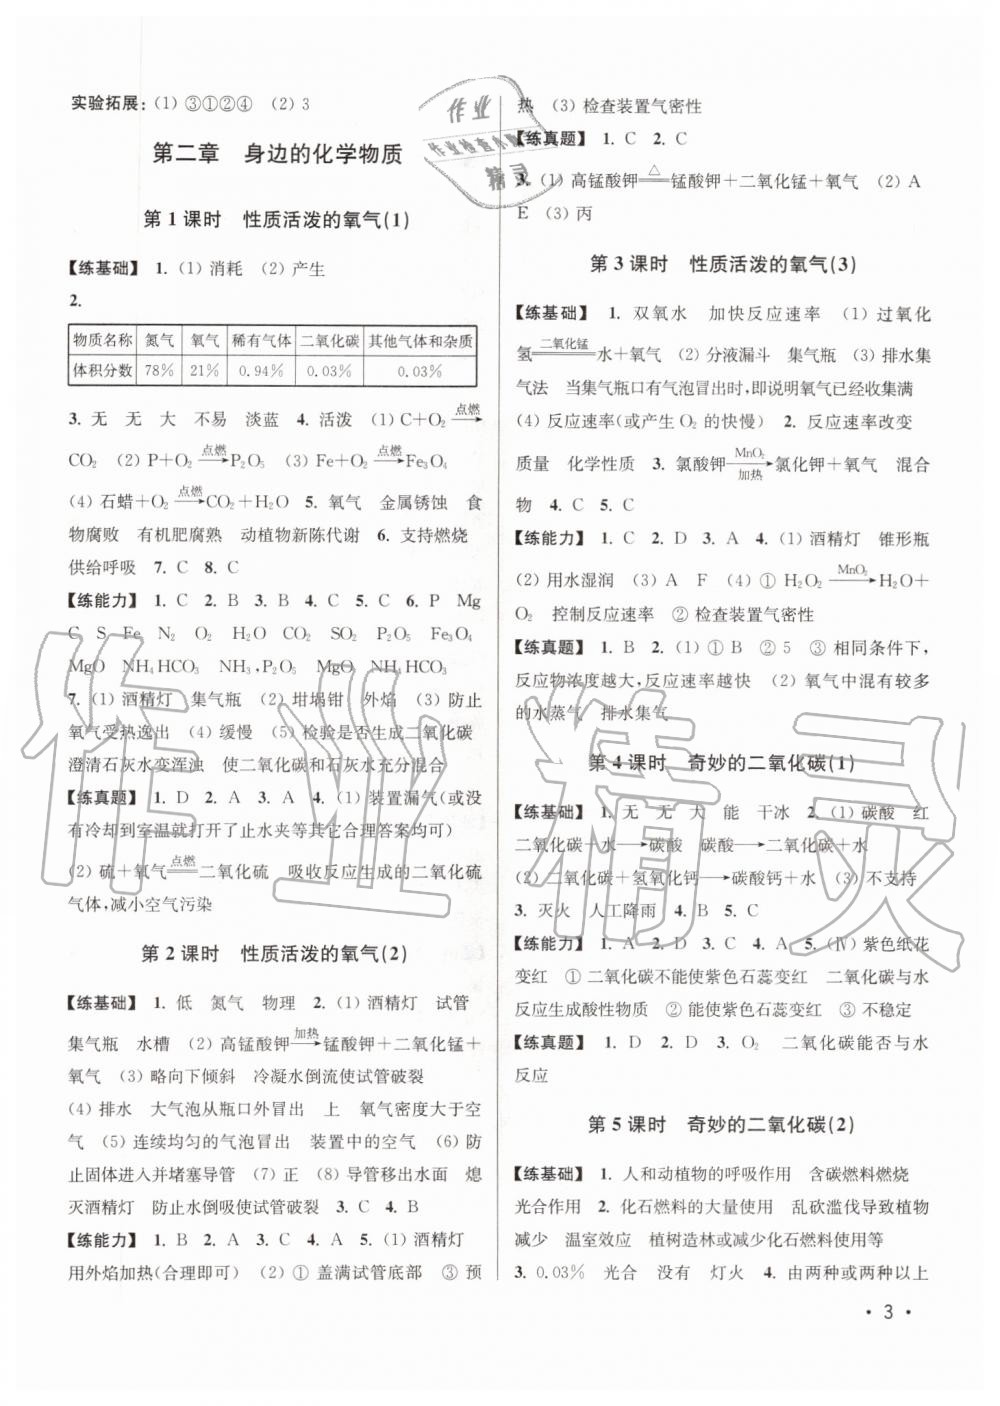 实验拓展：(1) ③①②④　(2) 3
第二章　身边的化学物质
第1课时　性质活泼的氧气(1)
【练基础】 1. (1) 消耗　(2) 产生
2.
物质名称　氮气　氧气　稀有气体　二氧化碳　其他气体和杂质
体积分数　78%　21%　0.94%　0.03%　0.03%
3. 无　无　大　不易　淡蓝　4. 活泼　(1) C＋O₂ 点燃→
CO₂　(2) P＋O₂ 点燃→ P₂O₅　(3) Fe＋O₂ 点燃→ Fe₃O₄
(4) 石蜡＋O₂ 点燃→ CO₂＋H₂O　5. 氧气　金属锈蚀　食
物腐败　有机肥腐熟　动植物新陈代谢　6. 支持燃烧
供给呼吸　7. C　8. C
【练能力】 1. C　2. B　3. B　4. C　5. C　6. P　Mg
C　S　Fe　N₂　O₂　H₂O　CO₂　SO₂　P₂O₅　Fe₃O₄
MgO　NH₄HCO₃　NH₃,P₂O₅　MgO　NH₄HCO₃
7. (1) 酒精灯　集气瓶　(2) 坩埚钳　外焰　(3) 防止
氧气受热逸出　(4) 缓慢　(5) 检验是否生成二氧化碳
澄清石灰水变浑浊　使二氧化碳和石灰水充分混合
【练真题】 1. D　2. A　3. A　4. (1) 装置漏气(或没
有冷却到室温就打开了止水夹等其它合理答案均可)
(2) 硫＋氧气 点燃═ 二氧化硫　吸收反应生成的二氧化硫
气体,减小空气污染
第2课时　性质活泼的氧气(2)
【练基础】 1. 低　氮气　物理　2. (1) 酒精灯　试管
集气瓶　水槽　(2) 高锰酸钾 加热→ 锰酸钾＋二氧化锰＋
氧气　(3) 略向下倾斜　冷凝水倒流使试管破裂
(4) 排水　大气泡从瓶口外冒出　上　氧气密度大于空
气　(5) 连续均匀的气泡冒出　装置中的空气　(6) 防
止固体进入并堵塞导管　(7) 正　(8) 导管移出水面　熄
灭酒精灯　防止水倒吸使试管破裂　3. C　4. B
【练能力】 1. B　2. A　3. C　4. A　5. (1) 酒精灯
用外焰加热(合理即可)　(2) ① 盖满试管底部　③ 预
热　(3) 检查装置气密性
【练真题】 1. C　2. C
3. (1) 高锰酸钾 △═ 锰酸钾＋二氧化锰＋氧气　(2) A
E　(3) 丙
第3课时　性质活泼的氧气(3)
【练基础】 1. 双氧水　加快反应速率　(1) 过氧化
氢 二氧化锰═ 水＋氧气　(2) 分液漏斗　集气瓶　(3) 排水集
气法　当集气瓶口有气泡冒出时,即说明氧气已经收集满
(4) 反应速率(或产生 O₂ 的快慢)　2. 反应速率改变
质量　化学性质　3. 氯酸钾 MnO₂/加热→ 氯化钾＋氧气　混合
物　4. C　5. C
【练能力】 1. C　2. D　3. A　4. (1) 酒精灯　锥形瓶
(2) 用水湿润　(3) A　F　(4) ① H₂O₂ MnO₂→ H₂O＋
O₂　控制反应速率　② 检查装置气密性
【练真题】 1. B　2. (1) ① B　② 5　③ 相同条件下,
反应物浓度越大,反应速率越快　(2) 氧气中混有较多
的水蒸气　排水集气
第4课时　奇妙的二氧化碳(1)
【练基础】 1. 无　无　大　能　干冰　2. (1) 碳酸　红
二氧化碳＋水→碳酸　碳酸→二氧化碳＋水
(2) 二氧化碳＋氢氧化钙→碳酸钙＋水　(3) 不支持
3. 灭火　人工降雨　4. B　5. C
【练能力】 1. A　2. D　3. C　4. A　5. (Ⅳ) 紫色纸花
变红　① 二氧化碳不能使紫色石蕊变红　二氧化碳与水
反应生成酸性物质　② 能使紫色石蕊变红　③ 不稳定
【练真题】 1. D　2. D　3. O₂　二氧化碳能否与水
反应
第5课时　奇妙的二氧化碳(2)
【练基础】 1. 人和动植物的呼吸作用　含碳燃料燃烧
光合作用　2. 化石燃料的大量使用　乱砍滥伐导致植物
减少　温室效应　植树造林或减少化石燃料的使用等
3. 0.03%　光合　没有　灯火　4. 由两种或两种以上
· 3 ·
作业
作业检查小帮手
精灵
作业精灵